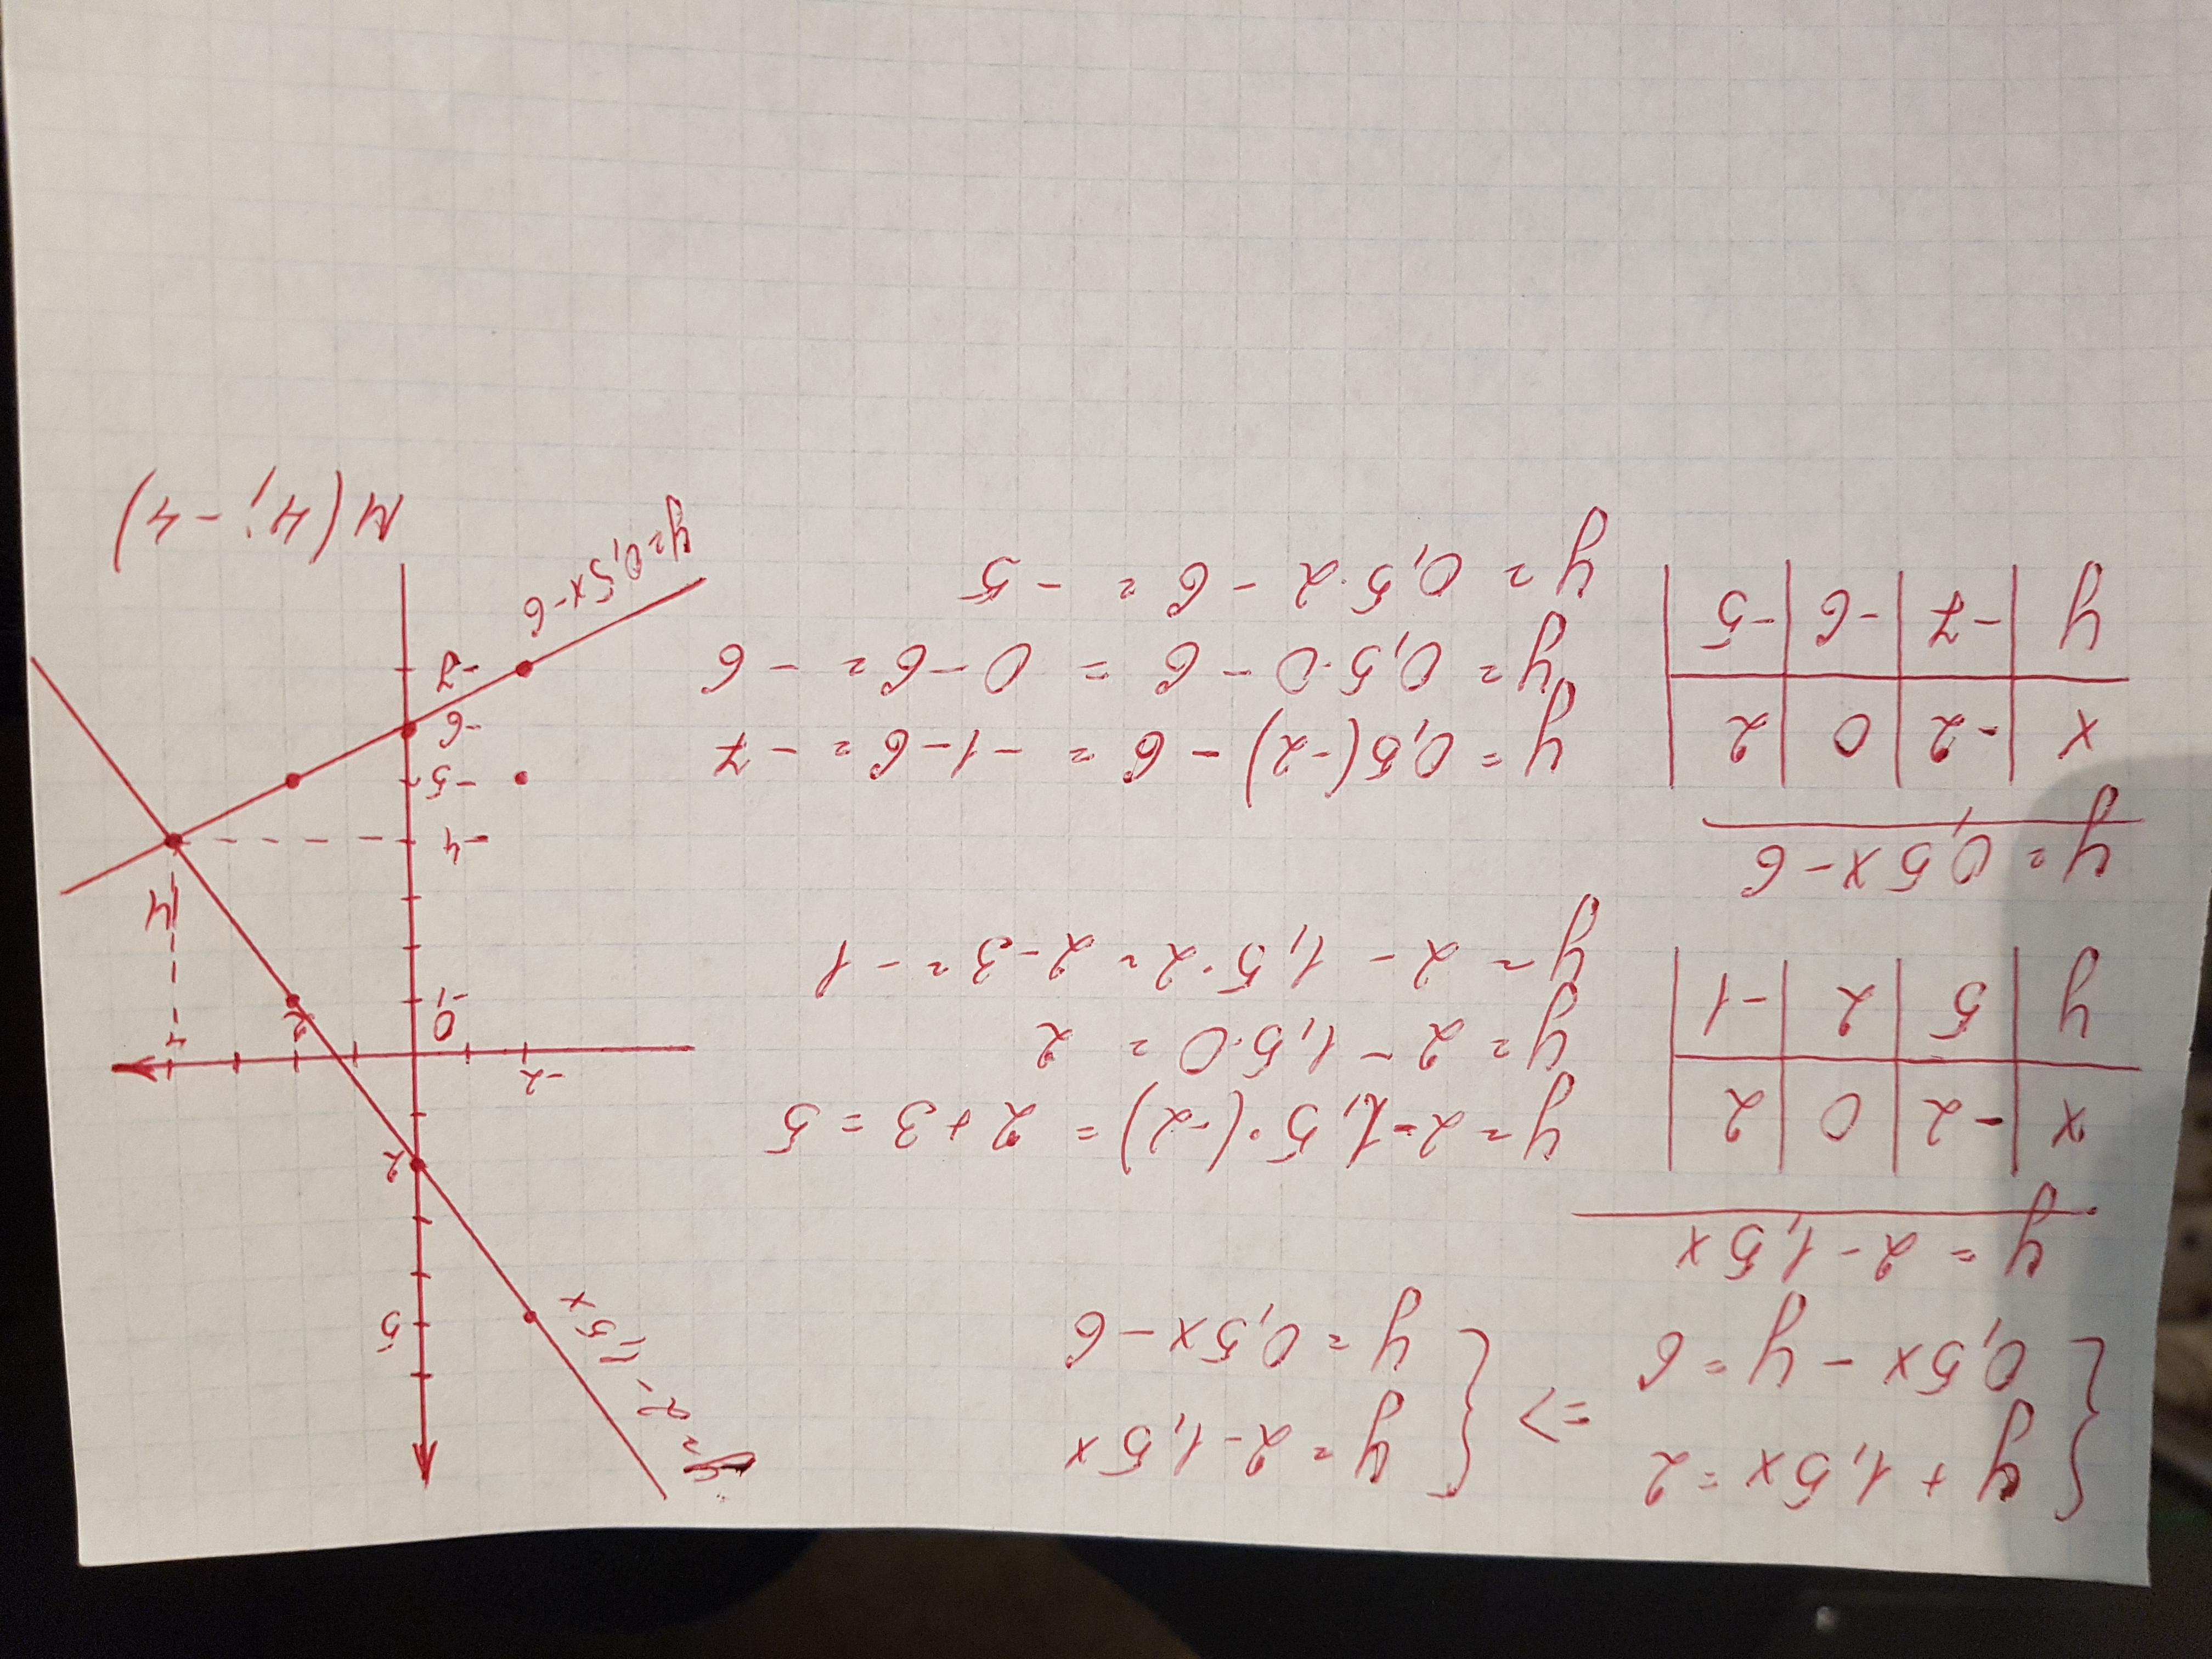 { y + 1,5x = 2
{ 0,5x - y = 6
=>
{ y = 2 - 1,5x
{ y = 0,5x - 6
y = 2 - 1,5x
x | -2 | 0 | 2
y | 5 | 2 | -1
y = 2 - 1,5·(-2) = 2 + 3 = 5
y = 2 - 1,5·0 = 2
y = 2 - 1,5·2 = 2 - 3 = -1
y = 0,5x - 6
x | -2 | 0 | 2
y | -7 | -6 | -5
y = 0,5(-2) - 6 = -1 - 6 = -7
y = 0,5·0 - 6 = 0 - 6 = -6
y = 0,5·2 - 6 = -5
y = 2 - 1,5x
5
2
-2
0
2
4
-1
M
-4
-5
-6
-7
y = 0,5x - 6
M(4; -4)